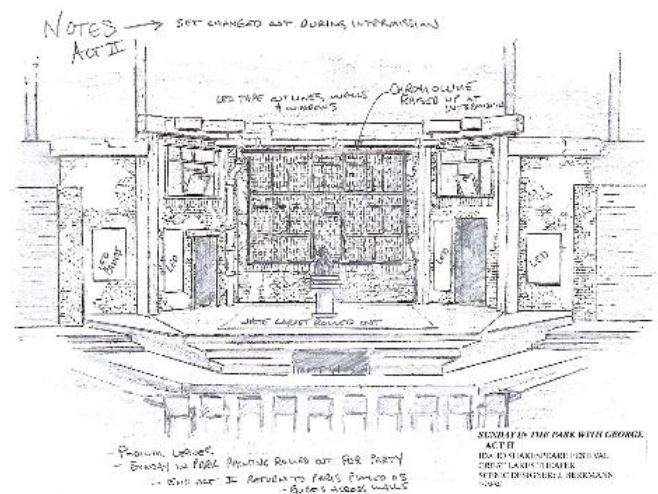 NOTES → SET CHANGED OUT DURING INTERMISSION
ACT II
LED TAPE OUTLINES WALLS
& WINDOWS
CHROMOLUME
RAISED UP AT
INTERMISSION
LED
LED
LED
LED
WHITE CARPET ROLLED OUT
- PODIUM
- SUNDAY IN PARK PAINTING ROLLED OUT FOR PARTY
- END ACT II RETURN TO PARIS
ACROSS WALLS
SUNDAY IN THE PARK WITH GEORGE
ACT II
IDAHO SHAKESPEARE FESTIVAL
GREAT LAKES THEATER
SCENIC DESIGNER: J. HERRMANN